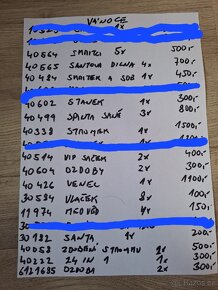 VÁNOCE
40564 SMRTCI 5x 500,-
40565 SANTOVA DILNA 4x 700,-
40484 SMRTEK A SOB 1x 450,-
40602 STANEK 1x 300,-
40499 SANTA SANĚ 3x 800,-
40338 STROMEK 1x 1100,-
40514 VIP SAČEK 2x 400,-
40604 OZDOBY 2x 300,-
40426 VENEC 1x 1100,-
30584 VLAČEK 8x
11974 MEDVĚD 4x 150,-
30182 SANTA 1x 200,-
40058 ZDOBENÍ STROMKU 1x 500,-
40222 24 IN 1 1x 300,-
6121685 OZDOBA 2x 300,-